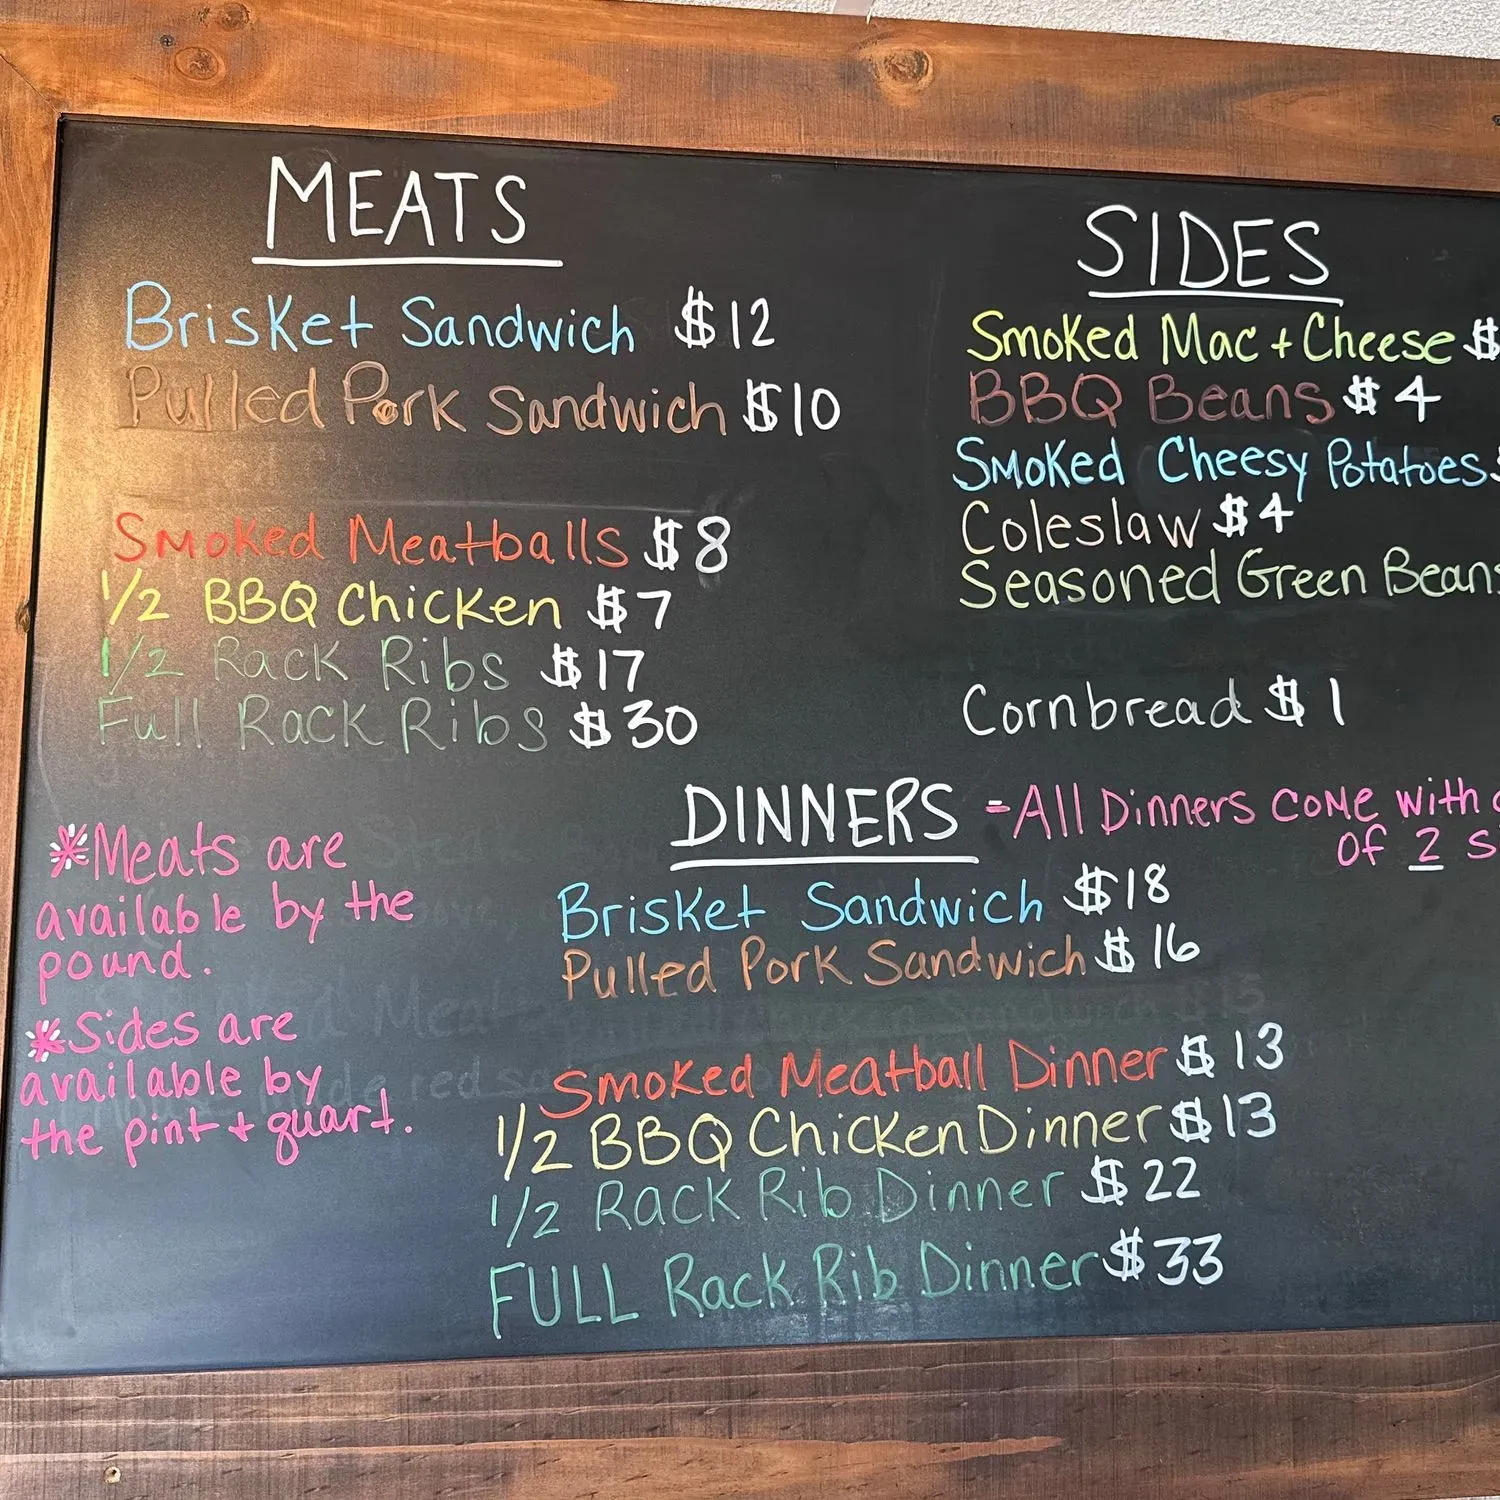 MEATS
Brisket Sandwich $12
Pulled Pork Sandwich $10
Smoked Meatballs $8
1/2 BBQ Chicken $7
1/2 Rack Ribs $17
Full Rack Ribs $30
*Meats are
available by the
pound.
*Sides are
available by
the pint + quart.
SIDES
Smoked Mac + Cheese $
BBQ Beans $4
Smoked Cheesy Potatoes
Coleslaw $4
Seasoned Green Beans
Cornbread $1
DINNERS -All Dinners come with
of 2
Brisket Sandwich $18
Pulled Pork Sandwich $16
Smoked Meatball Dinner $13
1/2 BBQ Chicken Dinner $13
1/2 Rack Rib Dinner $22
FULL Rack Rib Dinner $33